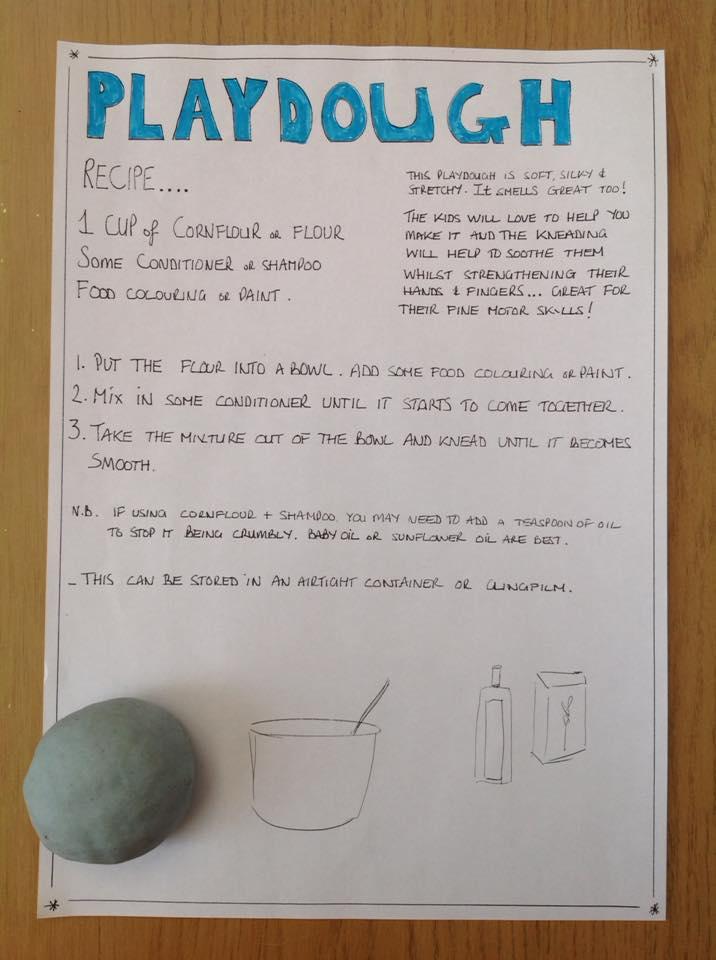 PLAYDOUGH
RECIPE....
1 CUP of CORNFLOUR OR FLOUR
SOME CONDITIONER OR SHAMPOO
FOOD COLOURING OR PAINT.
THIS PLAYDOUGH IS SOFT, SILKY &
STRETCHY. It SMELLS GREAT TOO!
THE KIDS WILL LOVE TO HELP YOU
MAKE IT AND THE KNEADING
WILL HELP TO SOOTHE THEM
WHILST STRENGTHENING THEIR
HANDS & FINGERS... GREAT FOR
THEIR FINE MOTOR SKILLS!
1. PUT THE FLOUR INTO A BOWL. ADD SOME FOOD COLOURING OR PAINT.
2. MIX IN SOME CONDITIONER UNTIL IT STARTS TO COME TOGETHER.
3. TAKE THE MIXTURE OUT OF THE BOWL AND KNEAD UNTIL IT BECOMES
SMOOTH.
N.B. IF USING CORNFLOUR + SHAMPOO. YOU MAY NEED TO ADD A TEASPOON OF OIL
TO STOP IT BEING CRUMBLY. BABY OIL OR SUNFLOWER OIL ARE BEST.
- THIS CAN BE STORED IN AN AIRTIGHT CONTAINER OR CLINGFILM.